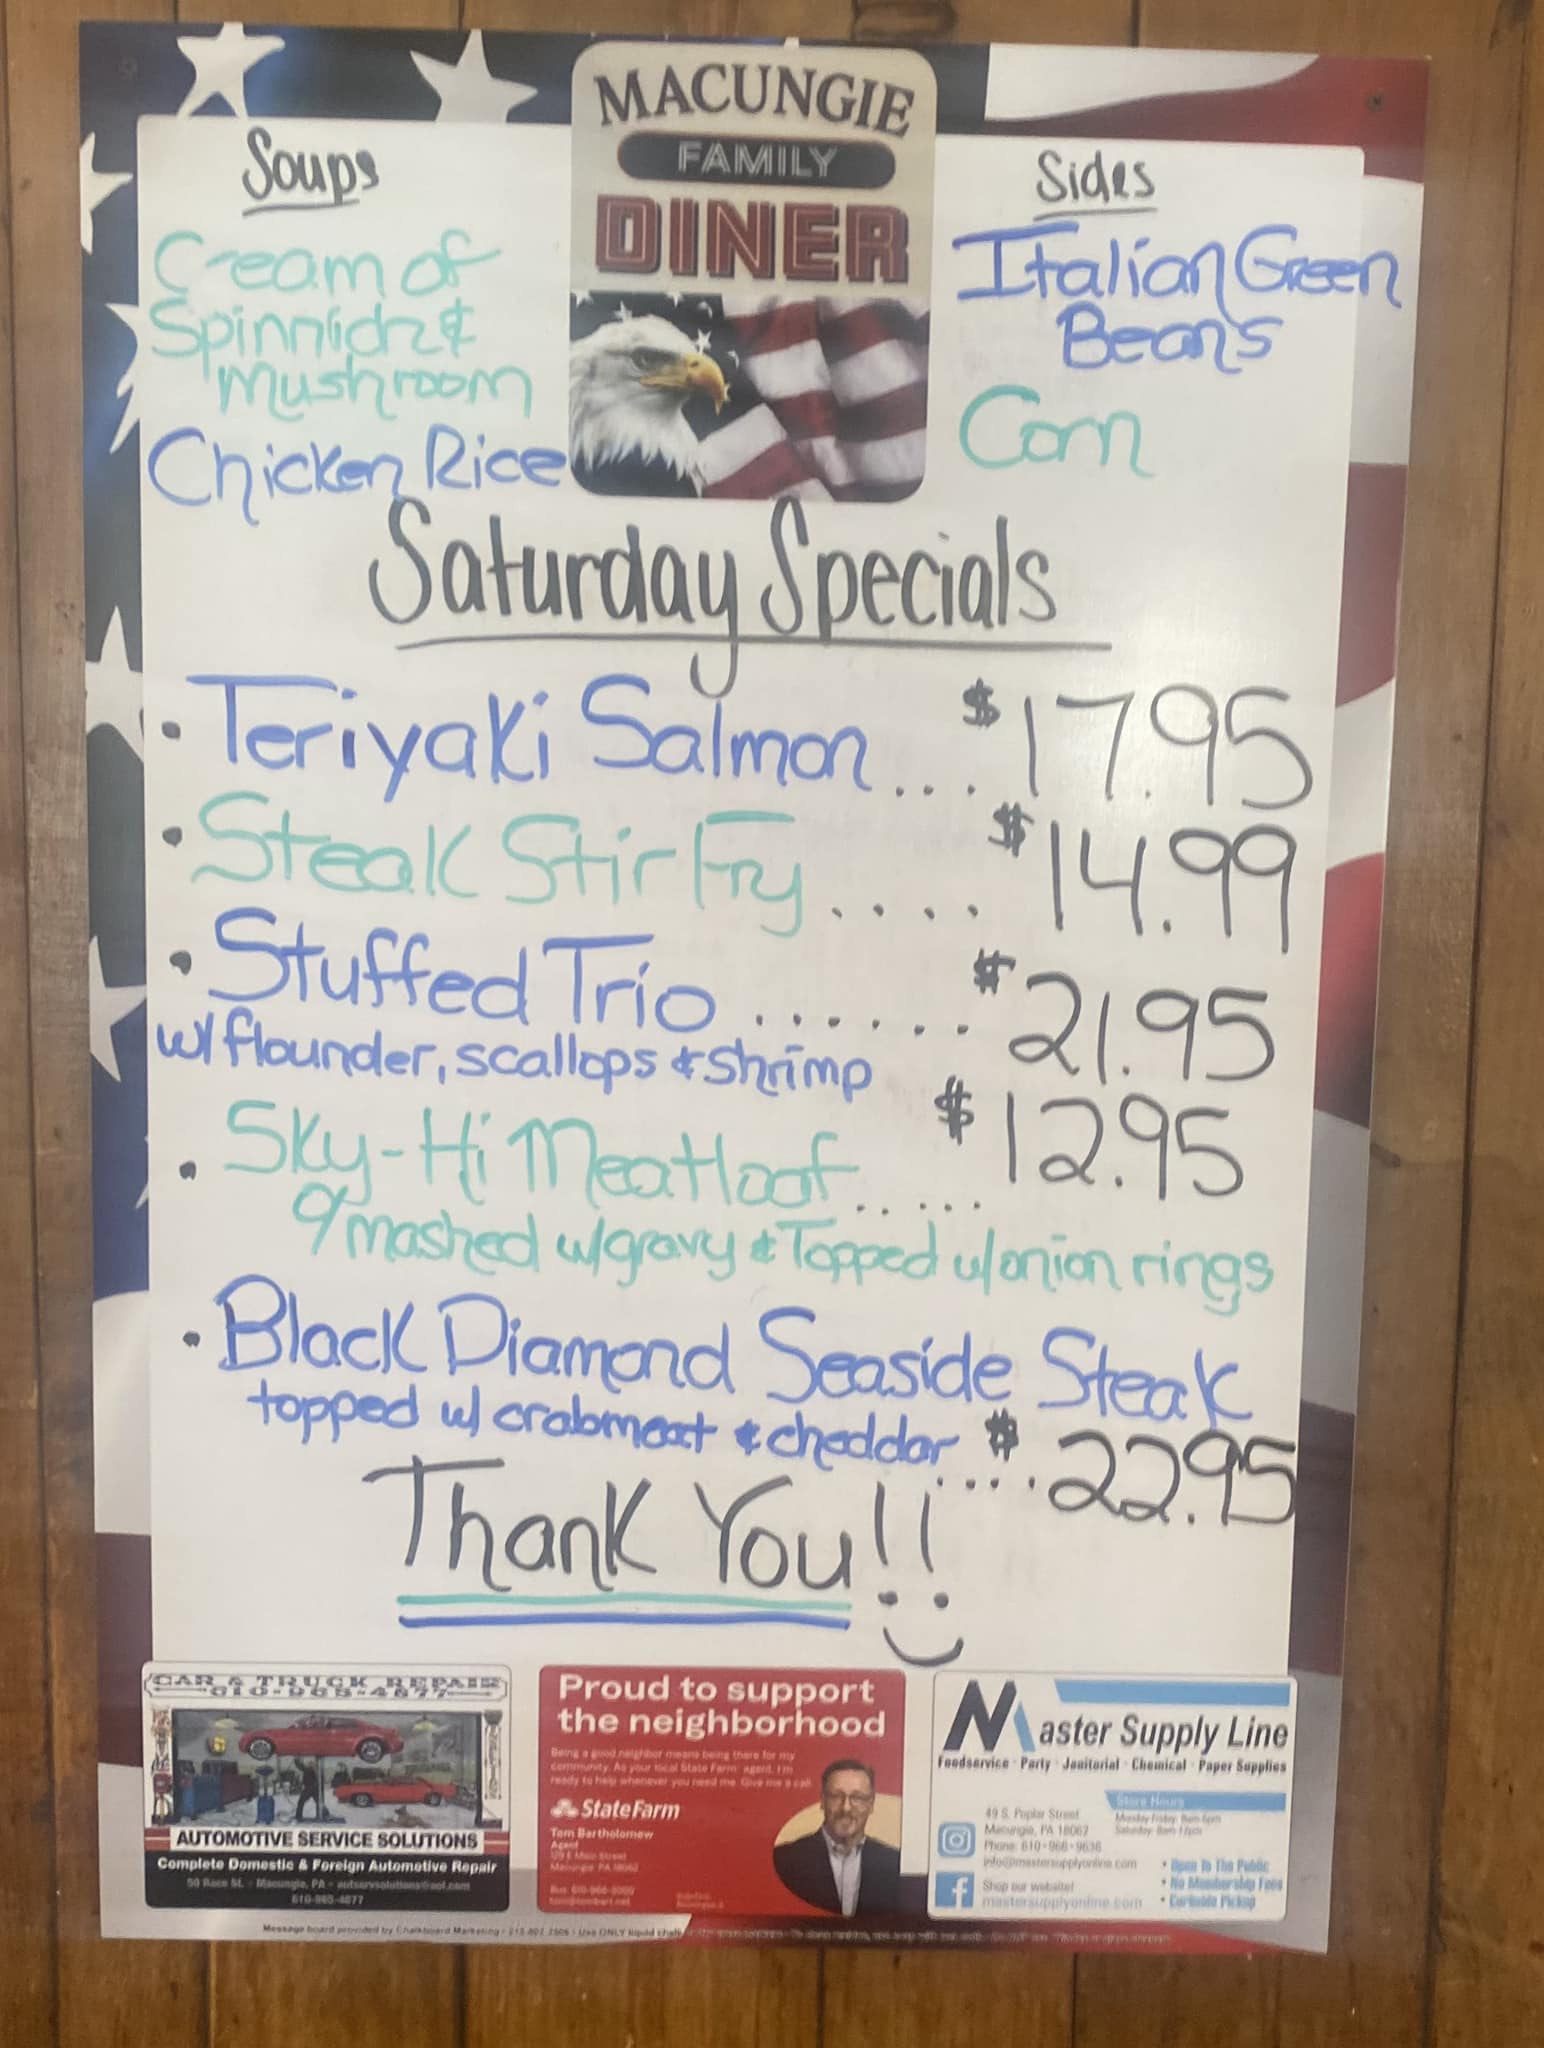 MACUNGIE
FAMILY
DINER
Soups
Cream of
&
Mushroom
Chicken Rice
Sides
Italian Green
Beans
Corn
Saturday Specials
• Teriyaki Salmon... $17.95
• Steak Stir Fry.... $14.99
• Stuffed Trio ...... $21.95
w/ flounder, scallops & shrimp
• Sky-Hi Meatloaf..... $12.95
mashed w/gravy & Topped w/onion rings
• Black Diamond Seaside Steak
topped w/ crabmeat & cheddar .... $22.95
Thank You!!
CAR & TRUCK REPAIR
610-965-4877
AUTOMOTIVE SERVICE SOLUTIONS
Complete Domestic & Foreign Automotive Repair
50 Race St. • Macungie, PA • autservsolutions@aol.com
610-965-4877
Proud to support
the neighborhood
Being a good neighbor means being there for my
community. As your local State Farm® agent, I'm
ready to help whenever you need me. Give me a call.
StateFarm
Tom Bartholomew
Agent
Macungie, PA 18062
Master Supply Line
Foodservice • Party • Janitorial • Chemical • Paper Supplies
49 S. Poplar Street
Macungie, PA 18062
Phone: 610-966-9636
info@mastersupplyonline.com
Shop our website!
mastersupplyonline.com
Store Hours
Monday-Friday: 8am-5pm
Saturday: 8am-12pm
• Open To The Public
• No Membership Fees
• Curbside Pickup
Message board provided by Chalkboard Marketing • Use ONLY liquid chalk